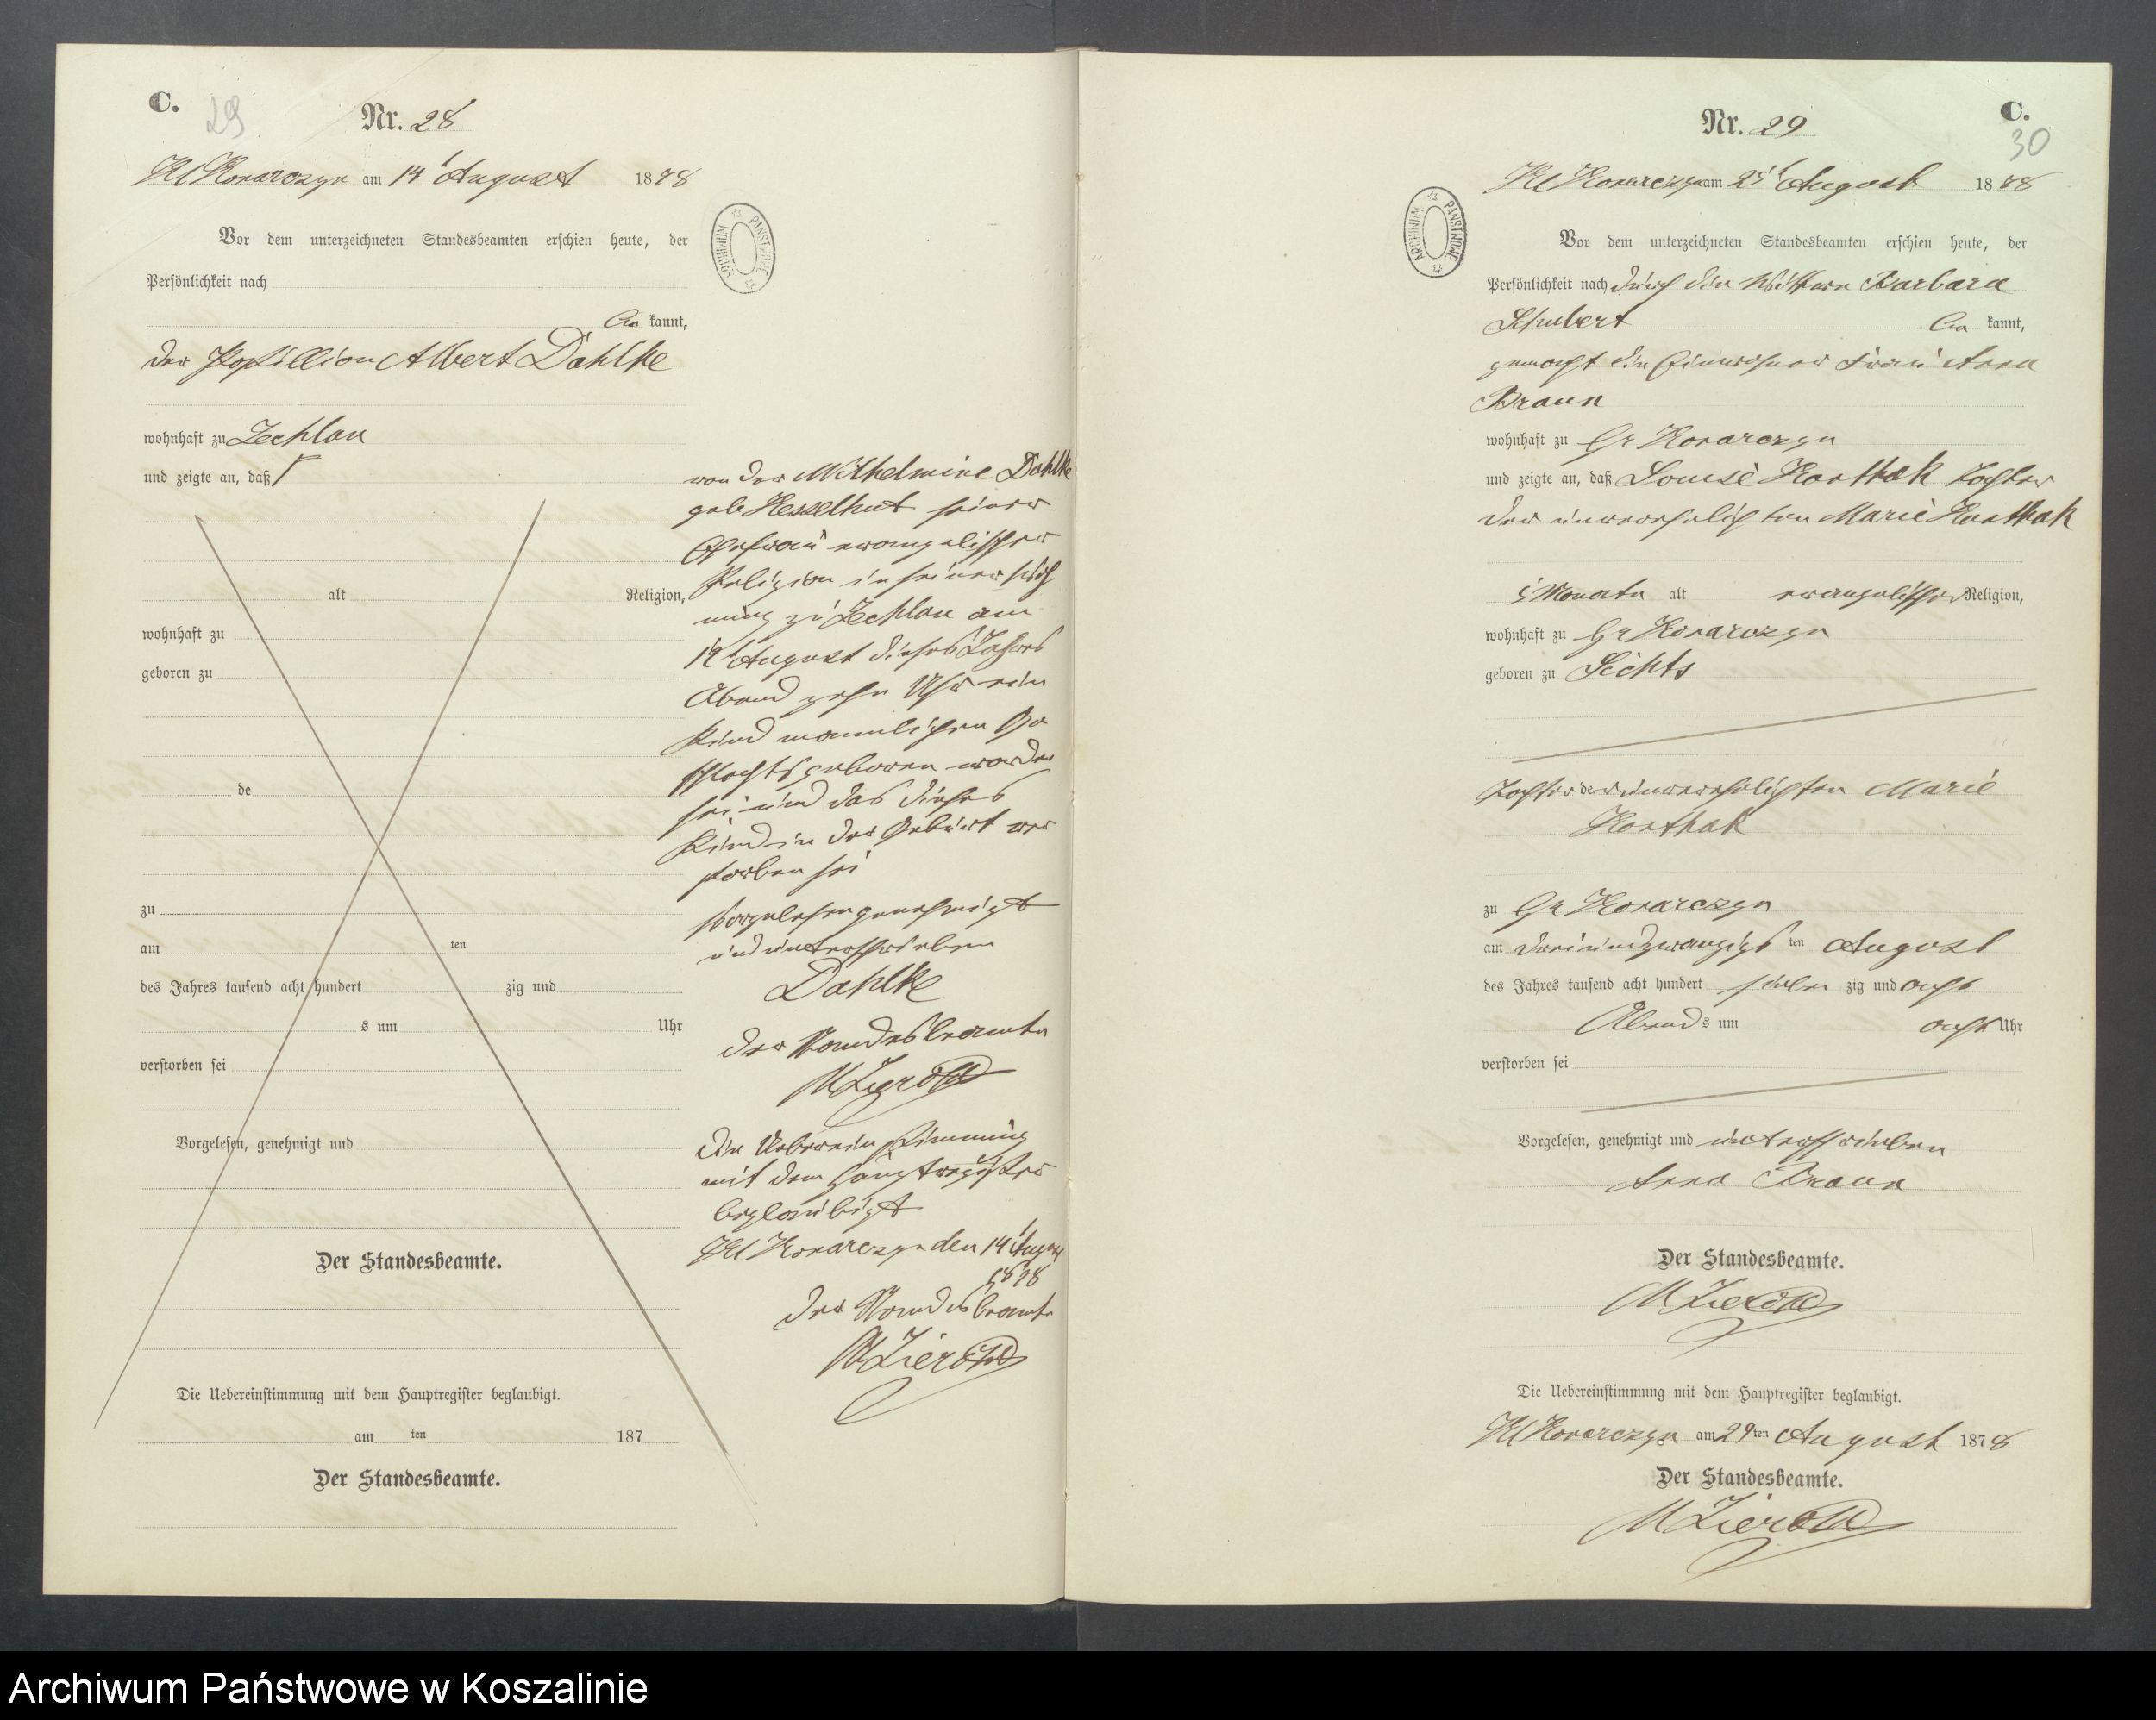 C.
29
Nr. 28
Kl Konarczyn am 14t August 1878
Vor dem unterzeichneten Standesbeamten erschien heute, der
Persönlichkeit nach
be kannt,
der Postillion Albert Dahlke
wohnhaft zu Zechlau
und zeigte an, daß
alt Religion,
wohnhaft zu
geboren zu
de
zu
am ten
des Jahres tausend acht hundert zig und
s um Uhr
verstorben sei
Vorgelesen, genehmigt und
Der Standesbeamte.
Die Uebereinstimmung mit dem Hauptregister beglaubigt.
am ten 187
Der Standesbeamte.
von der Wilhelmine Dahlke
geb Hesselhut seiner
Ehefrau evangelischer
Religion in seiner Woh
nung zu Zechlau am
August dieses Jahres
Abend zehn Uhr ein
Kind mannlichen Ge
schlechts geboren worden
sei und das dieses
Kind in der Geburt ver
storben sei
Vorgelesen genehmigt
und unterschrieben
Dahlke
der Standesbeamte
M Zierold
Die Uebereinstimmung
mit dem Hauptregister
beglaubigt
Kl Konarczyn den 14t August
1878
der Standesbeamte
M Zierold
ARCHIWUM PAŃSTWOWE
C.
30
Nr. 29
Kl Konarczyn am 25t August 1878
Vor dem unterzeichneten Standesbeamten erschien heute, der
Persönlichkeit nach durch die Wittwe Barbara
Schubert be kannt,
gemacht die Einwohner Frau Anna
Braun
wohnhaft zu Gr Konarczyn
und zeigte an, daß Louise Korthak Tochter
der unverehelichten Marie Korthak
Monate alt evangelischer Religion,
wohnhaft zu Gr Konarczyn
geboren zu Sichts
Tochter der unverehelichten Marie
Korthak
zu Gr Konarczyn
am dreiundzwanzigs ten August
des Jahres tausend acht hundert sieben zig und acht
Abend s um acht Uhr
verstorben sei
Vorgelesen, genehmigt und unterschrieben
Anna Braun
Der Standesbeamte.
M Zierold
Die Uebereinstimmung mit dem Hauptregister beglaubigt.
Kl Konarczyn am 29ten August 1878
Der Standesbeamte.
M Zierold
ARCHIWUM PAŃSTWOWE
Archiwum Państwowe w Koszalinie